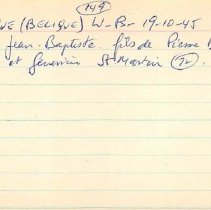 149
UE (BELIQUE) W-B- 19-10-45
Jean-Baptiste fils de Pierre
et Genevieve St Martin 92.